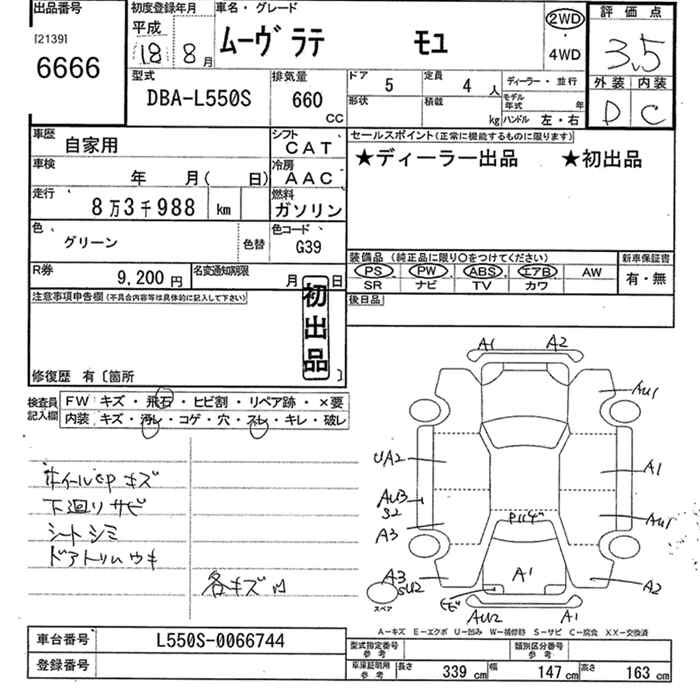 出品番号
[2139]
6666
初度登録年月
平成
18 8月
車名・グレード
ムーヴ ラテ モユ
2WD
・
4WD
評価点
3.5
外装 内装
D C
型式
DBA-L550S
排気量
660
CC
ドア 5
定員 4 人
形状
積載 kg
ディーラー・並行
モデル年式 年
ハンドル 左・右
車歴 自家用
シフト CAT
車検 年 月( 日)
冷房 AAC
走行 8万3千988 km
燃料 ガソリン
色、 グリーン
色替
色コード G39
R券 9,200円
名変通知期限 月 日
セールスポイント(正常に機能するものに限ります)
★ディーラー出品 ★初出品
装備品 (純正品に限り○をつけてください)
新車保証書
PS PW ABS エアB AW
有・無
SR ナビ TV カワ
後日品
注意事項申告欄(不具合内容等は具体的に記入して下さい)
初出品
修復歴 有〔箇所 〕
検査員記入欄
FW キズ・飛石・ヒビ割・リペア跡・×要
内装・キズ・汚レ・コゲ・穴・スレ・キレ・破レ
ホイールcpキズ
下廻りサビ
シートシミ
ドアトリムウキ
各キズ凹
A1 A2
AU1
UA2 A1
AU3
S2
A3 AU1
A1
A3
SU2
A2
スペア
AU2 A1
A-キズ E-エクボ U-凹み W-補修跡 S-サビ C-腐食 XX-交換済
車台番号 L550S-0066744
登録番号
型式指定番号 参考
類別区分番号 参考
車庫証明用 参考
長さ 339 cm 幅 147 cm 高さ 163 cm